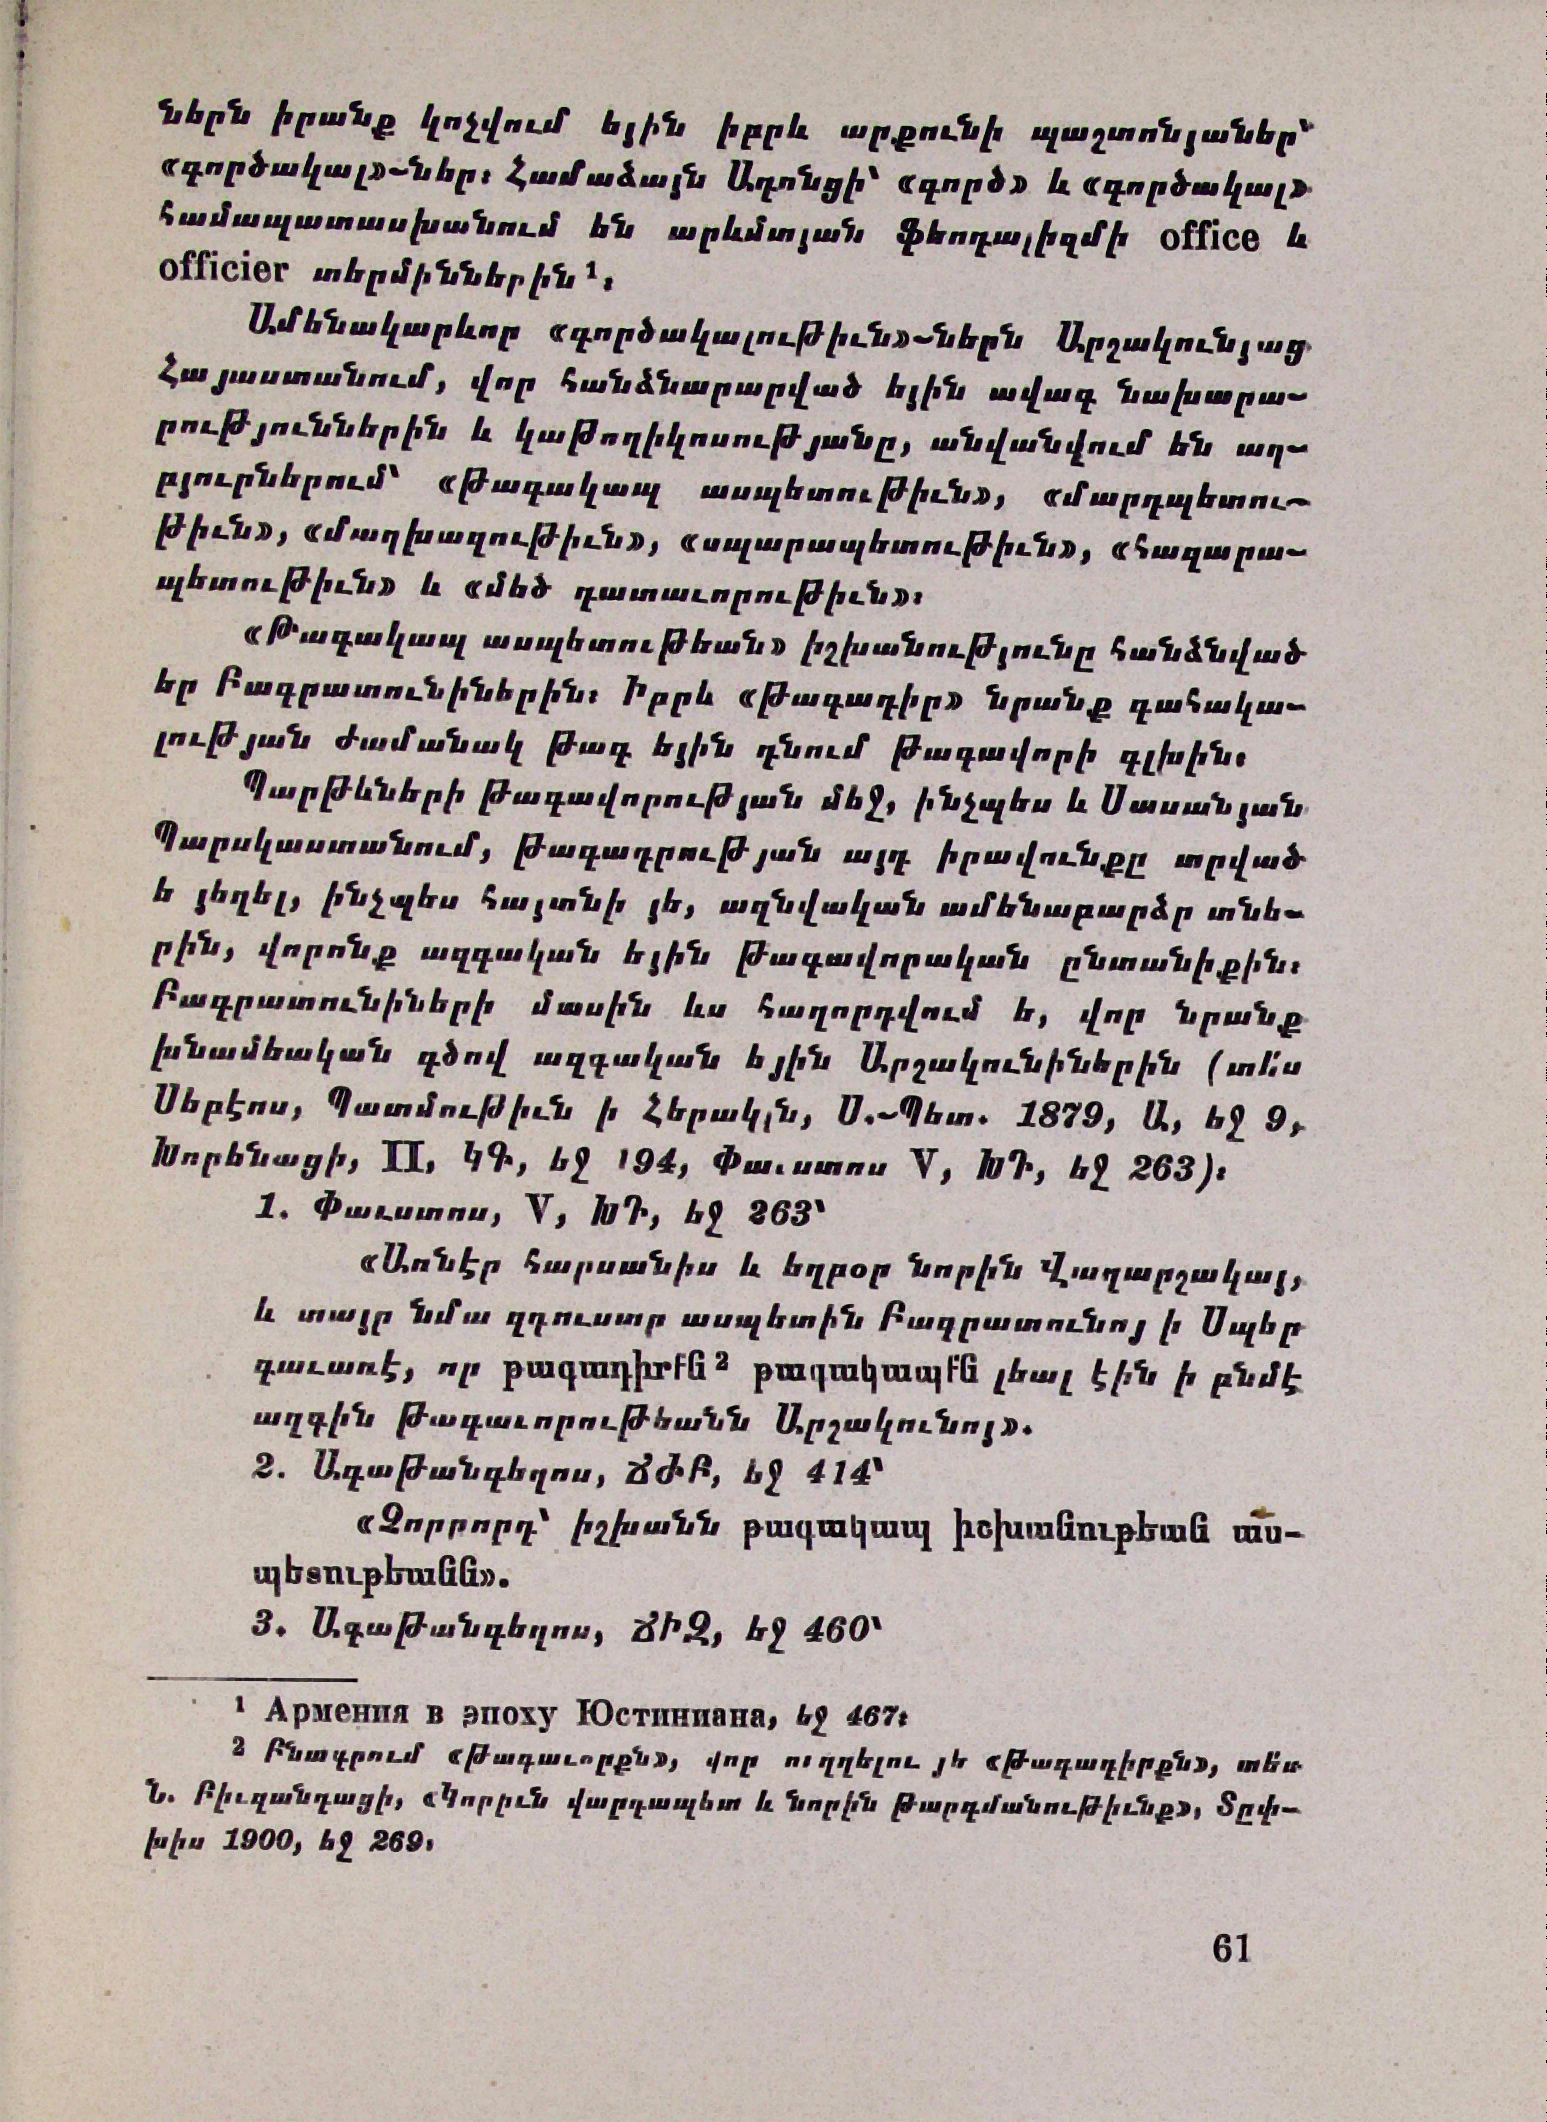 ներն իրանք կոչվում եյին իբրև արքունի պաշտոնյաներ՝
«գործակալ»-ներ։ Համաձայն Ադոնցի՝ «գործ» և «գործակալ»
համապատասխանում են արևմտյան ֆեոդալիզմի office և
officier տերմիններին ¹։
Ամենակարևոր «գործակալութիւն»-ներն Արշակունյաց
Հայաստանում, վոր հանձնարարված եյին ավագ նախարա-
րություններին և կաթողիկոսությանը, անվանվում են աղ-
բյուրներում՝ «թագակապ ասպետութիւն», «մարդպետու-
թիւն», «մաղխազութիւն», «սպարապետութիւն», «հազարա-
պետութիւն» և «մեծ դատաւորութիւն»։
«Թագակապ ասպետութեան» իշխանությունը հանձնված
եր Բագրատունիներին։ Իբրև «թագադիր» նրանք գահակա-
լության ժամանակ թագ եյին դնում թագավորի գլխին։
Պարթևների թագավորության մեջ, ինչպես և Սասանյան
Պարսկաստանում, թագադրության այդ իրավունքը տրված
ե յեղել, ինչպես հայտնի յե, ազնվական ամենաբարձր տնե-
րին, վորոնք ազգական եյին թագավորական ընտանիքին։
Բագրատունիների մասին ևս հաղորդվում ե, վոր նրանք
խնամեական գծով ազգական եյին Արշակունիներին (տե՛ս
Սեբէոս, Պատմութիւն ի Հերակլն, Ս.-Պետ. 1879, Ա, եջ 9,
Խորենացի, II, ԿԳ, եջ 194, Փաւստոս V, ԽԴ, եջ 263)։
1. Փաւստոս, V, ԽԴ, եջ 263՝
«Առնէր հարսանիս և եղբօր նորին Վաղարշակայ,
և տայր նմա զդուստր ասպետին Բագրատունոյ ի Սպեր
գաւառէ, որ թագադիրէն ² թագակապէն լեալ էին ի բնմէ
ազգին թագաւորութեանն Արշակունոյ».
2. Ագաթանգեղոս, ՃԺԲ, եջ 414՝
«Չորրորդ՝ իշխանն թագակապ իշխանութեան աս-
պետութեանն».
3. Ագաթանգեղոս, ՃԻԶ, եջ 460՝
¹ Армения в эпоху Юстиниана, եջ 467։
² Բնագրում «թագաւորքն», վոր ուղղելու յե «թագադիրքն», տե՛ս
Ն. Բիւզանդացի, «Կորիւն վարդապետ և նորին թարգմանութիւնք», Տըփ-
խիս 1900, եջ 269։
61